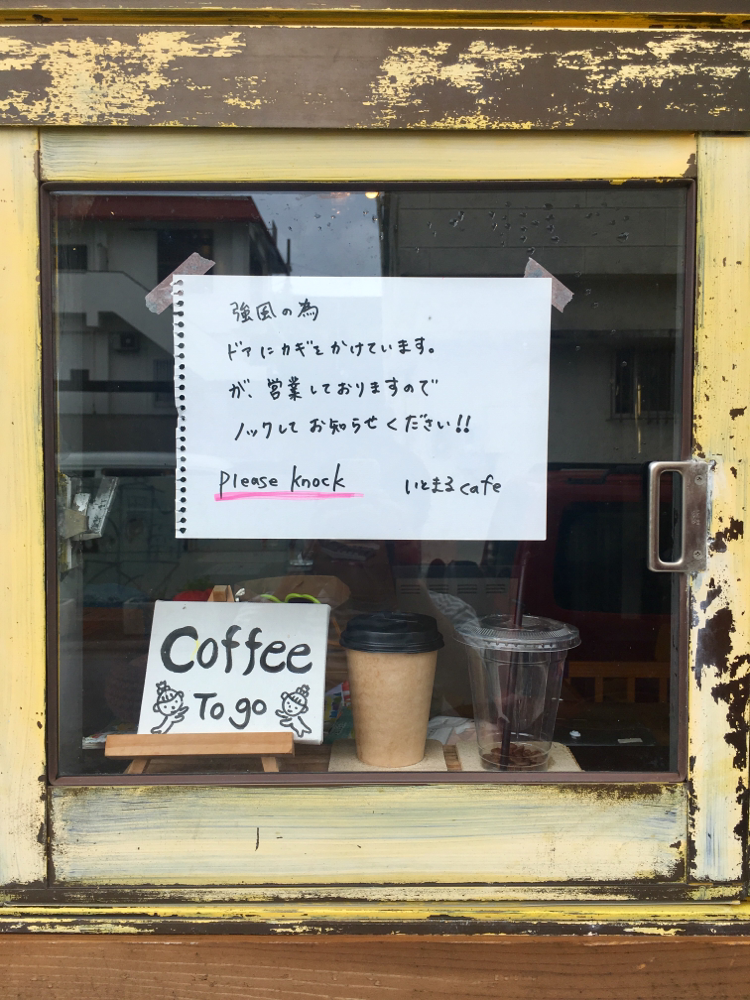 強風の為
ドアにカギをかけています。
が、営業しておりますので
ノックして お知らせください!!
please knock いとまるcafe
Coffee
To go